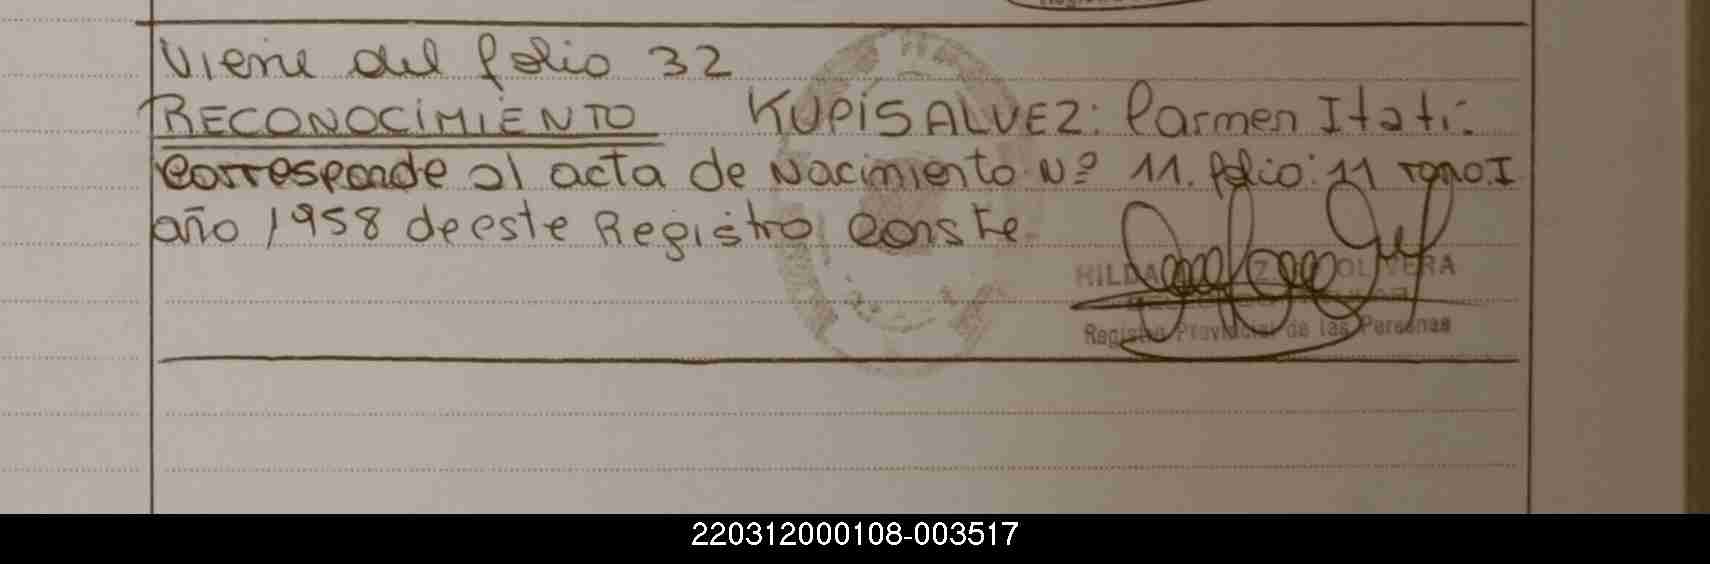 Viene del folio 32
RECONOCIMIENTO KUPISALVEZ: Carmen Itati.
Corresponde al acta de Nacimiento Nº 11. folio: 11 Tomo.I
año 1958 de este Registro Conste
HILDA OLIVERA
Registro Provincial de las Personas
220312000108-003517